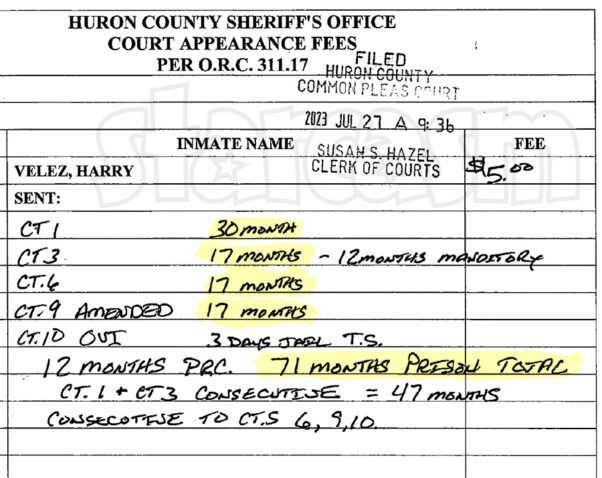 HURON COUNTY SHERIFF'S OFFICE
COURT APPEARANCE FEES
PER O.R.C. 311.17
FILED
HURON COUNTY
COMMON PLEAS COURT
2023 JUL 27 A 9:36
SUSAN S. HAZEL
CLERK OF COURTS
starcasm
INMATE NAME FEE
VELEZ, HARRY $5.00
SENT:
CT 1 30 MONTH
CT3 17 MONTHS - 12 MONTHS MANDITORY
CT.6 17 MONTHS
CT.9 AMENDED 17 MONTHS
CT.10 OVI 3 DAYS JAIL T.S.
12 MONTHS PRC. 71 MONTHS PRISON TOTAL
CT. 1 + CT3 CONSECUTIVE = 47 MONTHS
CONSECUTIVE TO CT.S 6, 9, 10.